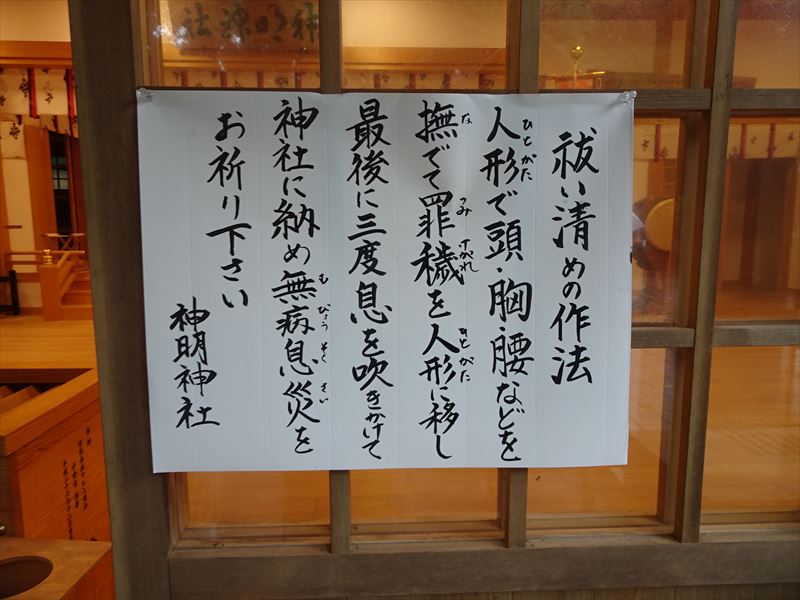 神明神社
祓い清めの作法
人形で頭・胸・腰などを
ひとがた
撫でて罪穢を人形に移し
な
つみ
けがれ
ひとがた
最後に三度息を吹きかけて
神社に納め無病息災を
むびょうそくさい
お祈り下さい
神明神社